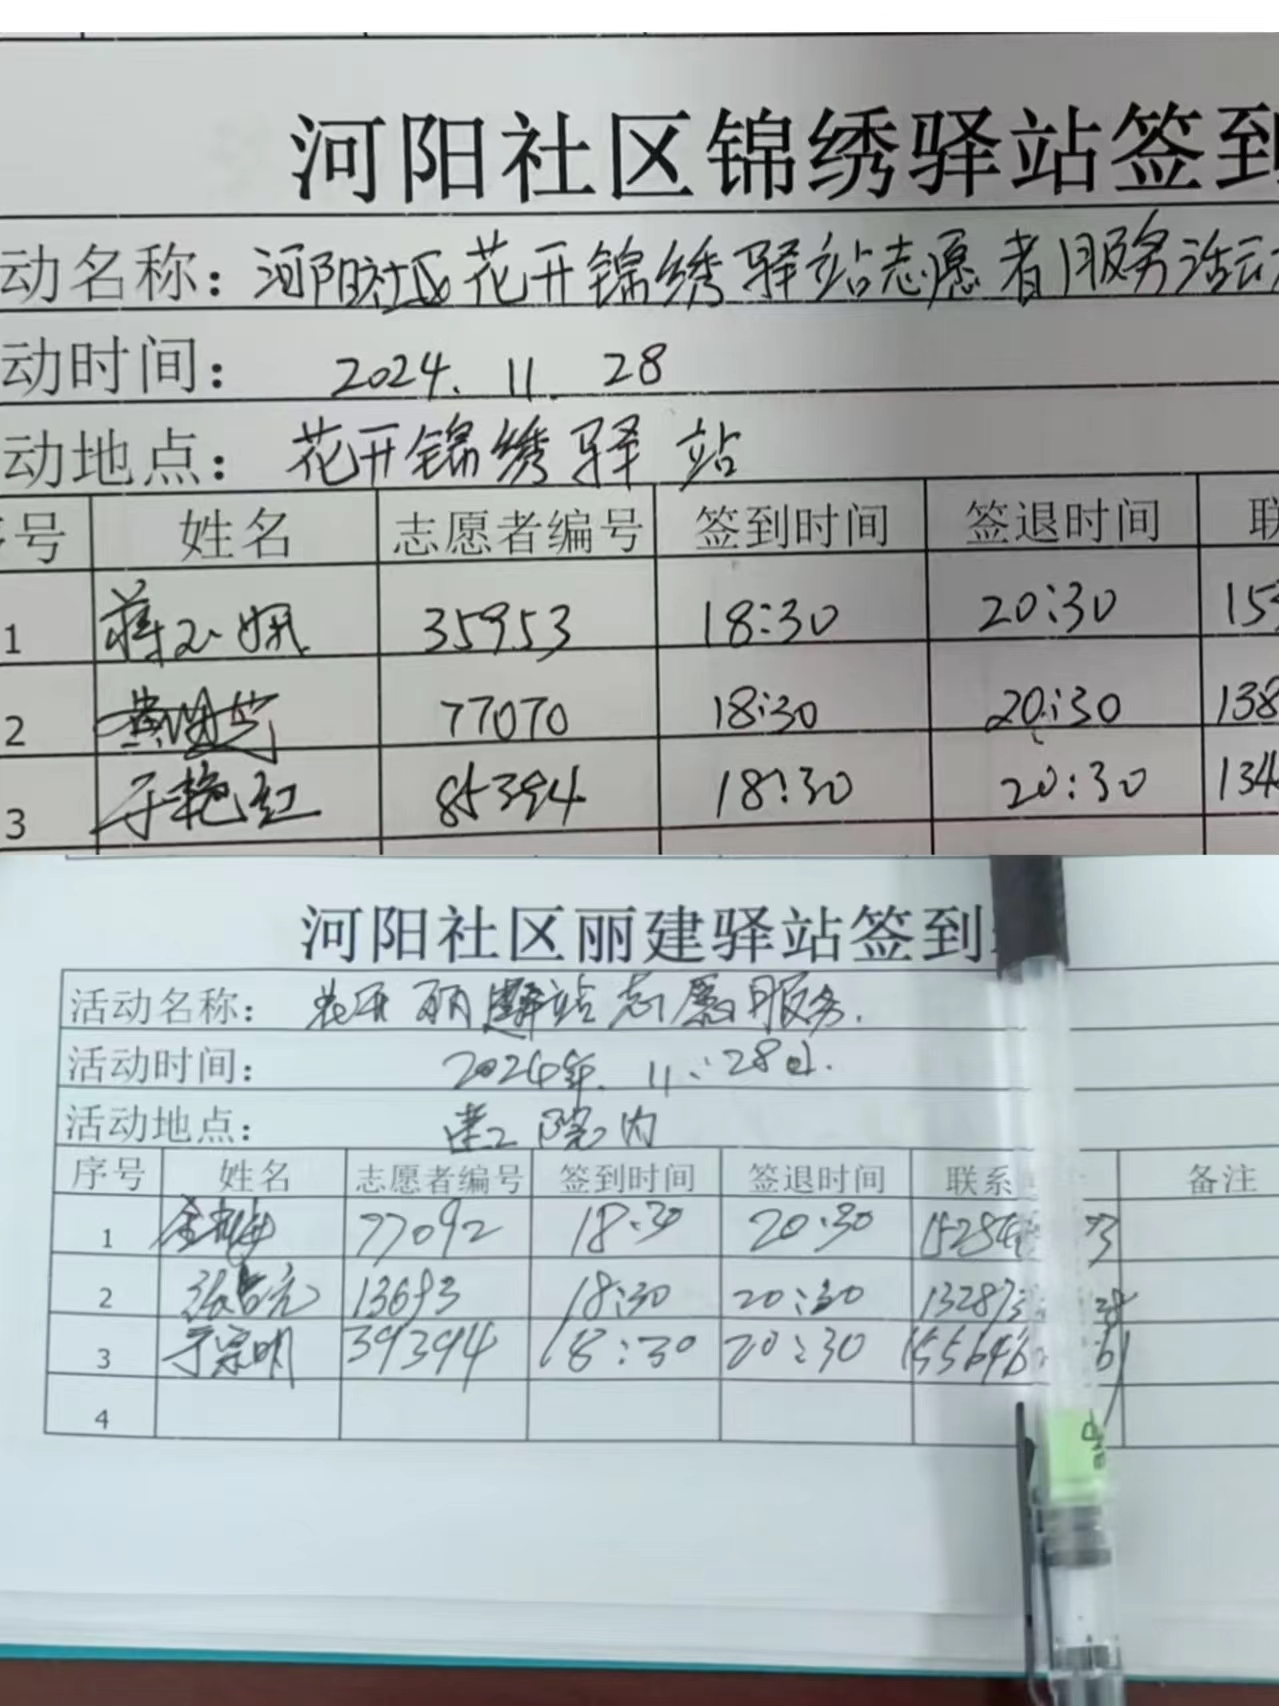 河阳社区锦绣驿站签到
动名称：河阳社区花开锦绣驿站志愿者服务活动
动时间： 2024.11.28
动地点：花开锦绣驿站
序号 姓名 志愿者编号 签到时间 签退时间 联
1 35953 18:30 20:30 15
2 77070 18:30 20:30 138
3 于艳红 85394 18:30 20:30 134
河阳社区丽建驿站签到
活动名称： 花开丽建驿站志愿服务.
活动时间： 2024年.11.28日.
活动地点： 建工院内
序号 姓名 志愿者编号 签到时间 签退时间 联系 备注
1 77092 18:30 20:30 15284 73
2 13693 18:30 20:30 13287
3 于宗明 39394 18:30 20:30 155646 61
4